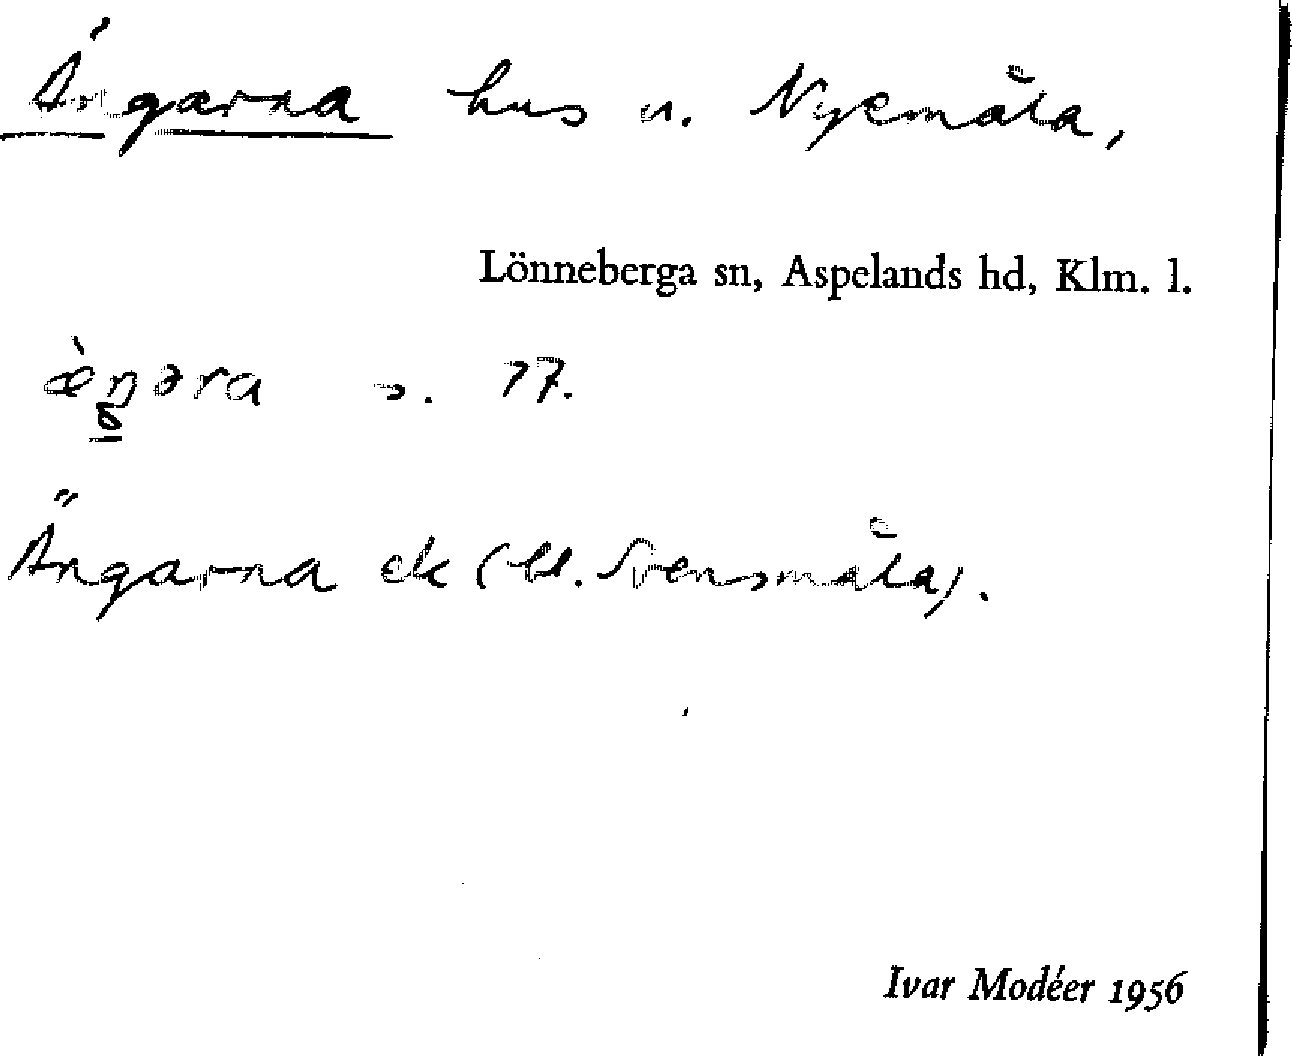 Ängarna hus u. Nyemåla,
Lönneberga sn, Aspelands hd, Klm. l.
æ̀ŋəra s. 77.
Ängarna ek (bl. Svensmåla).
Ivar Modéer 1956